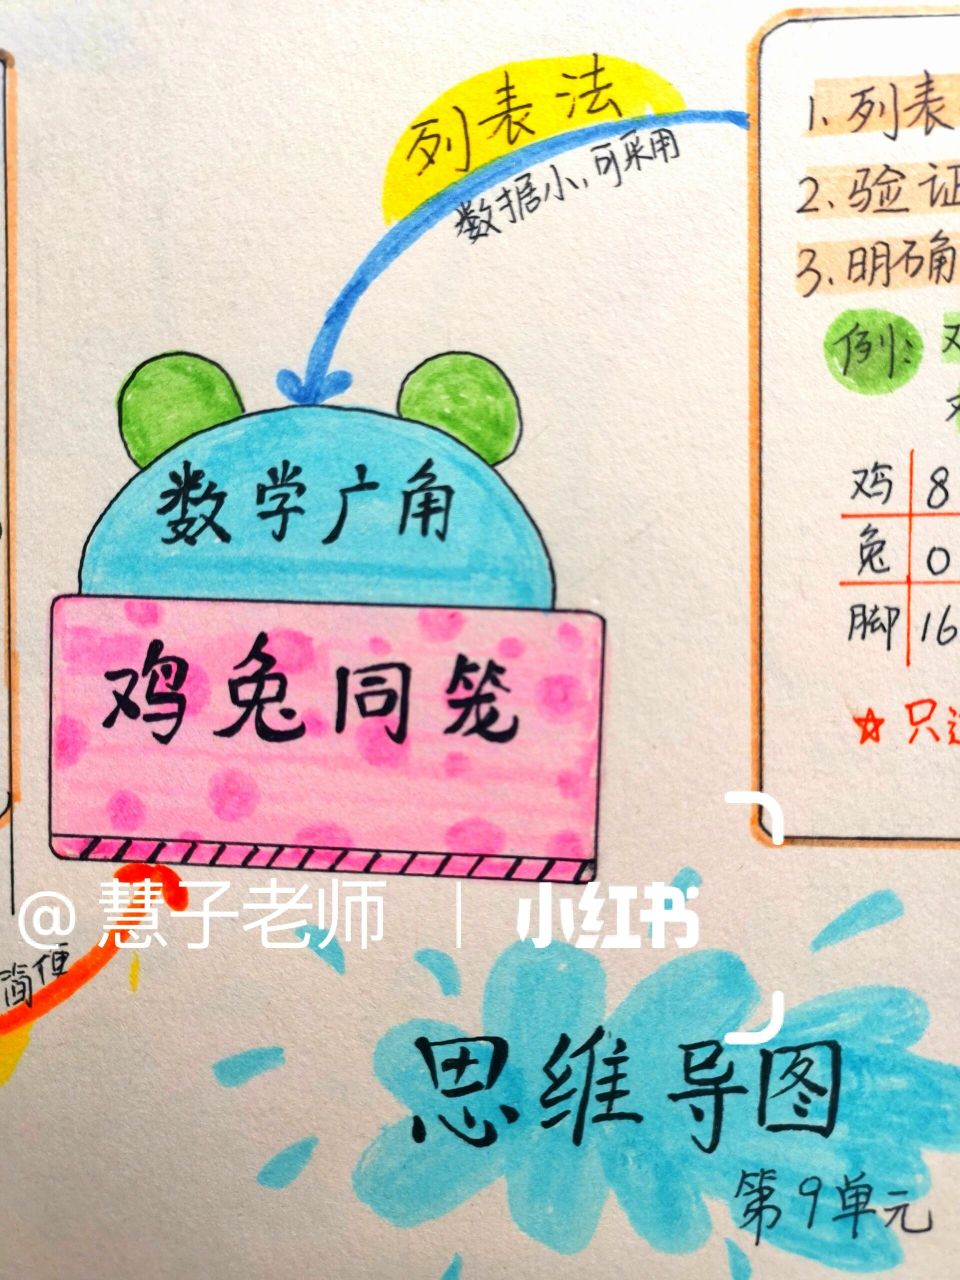 列表法
数据小,可采用
数学广角
鸡兔同笼
1.列表
2.验证
3.明确
例:
鸡 8
兔 0
脚 16
☆只
@慧子老师 | 小红书
简便
思维导图
第9单元